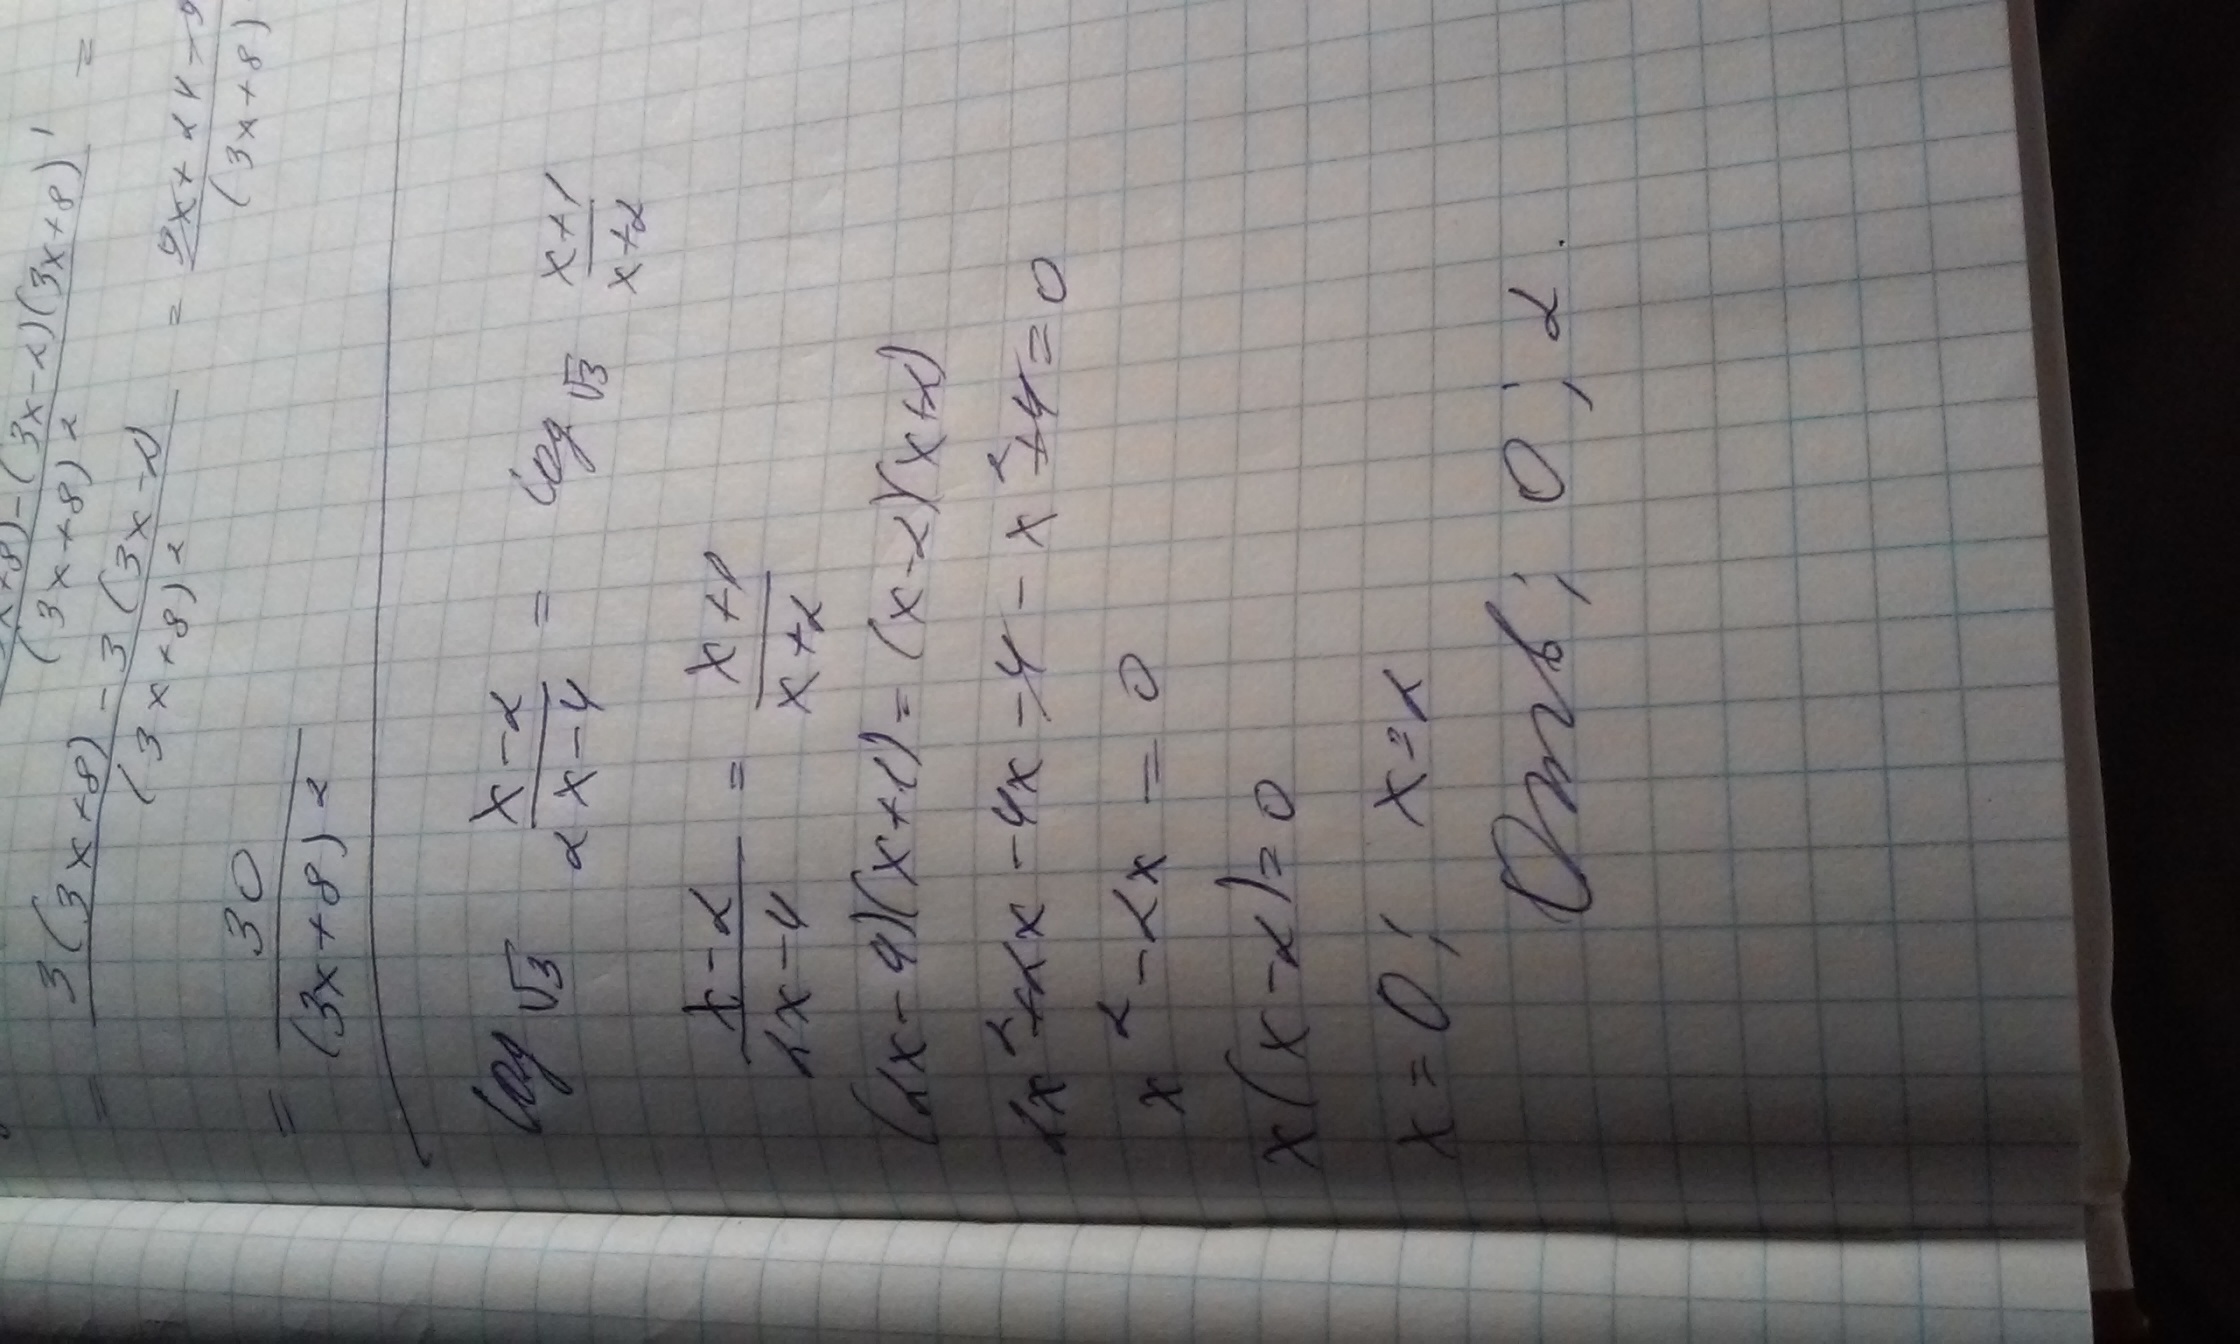 (3x+8)-(3x-2)(3x+8)' =
(3x+8)²
= 3(3x+8)-3(3x-2) = 9x+24-9
(3x+8)² (3x+8)
= 30
(3x+8)²
log√3 x-2/2x-4 = log√3 x+1/x+2
x-2/2x-4 = x+1/x+2
(2x-4)(x+1)=(x-2)(x+2)
2x²+2x-4x-4-x²+4=0
x²-2x=0
x(x-2)=0
x=0; x=2
Отв; 0; 2.